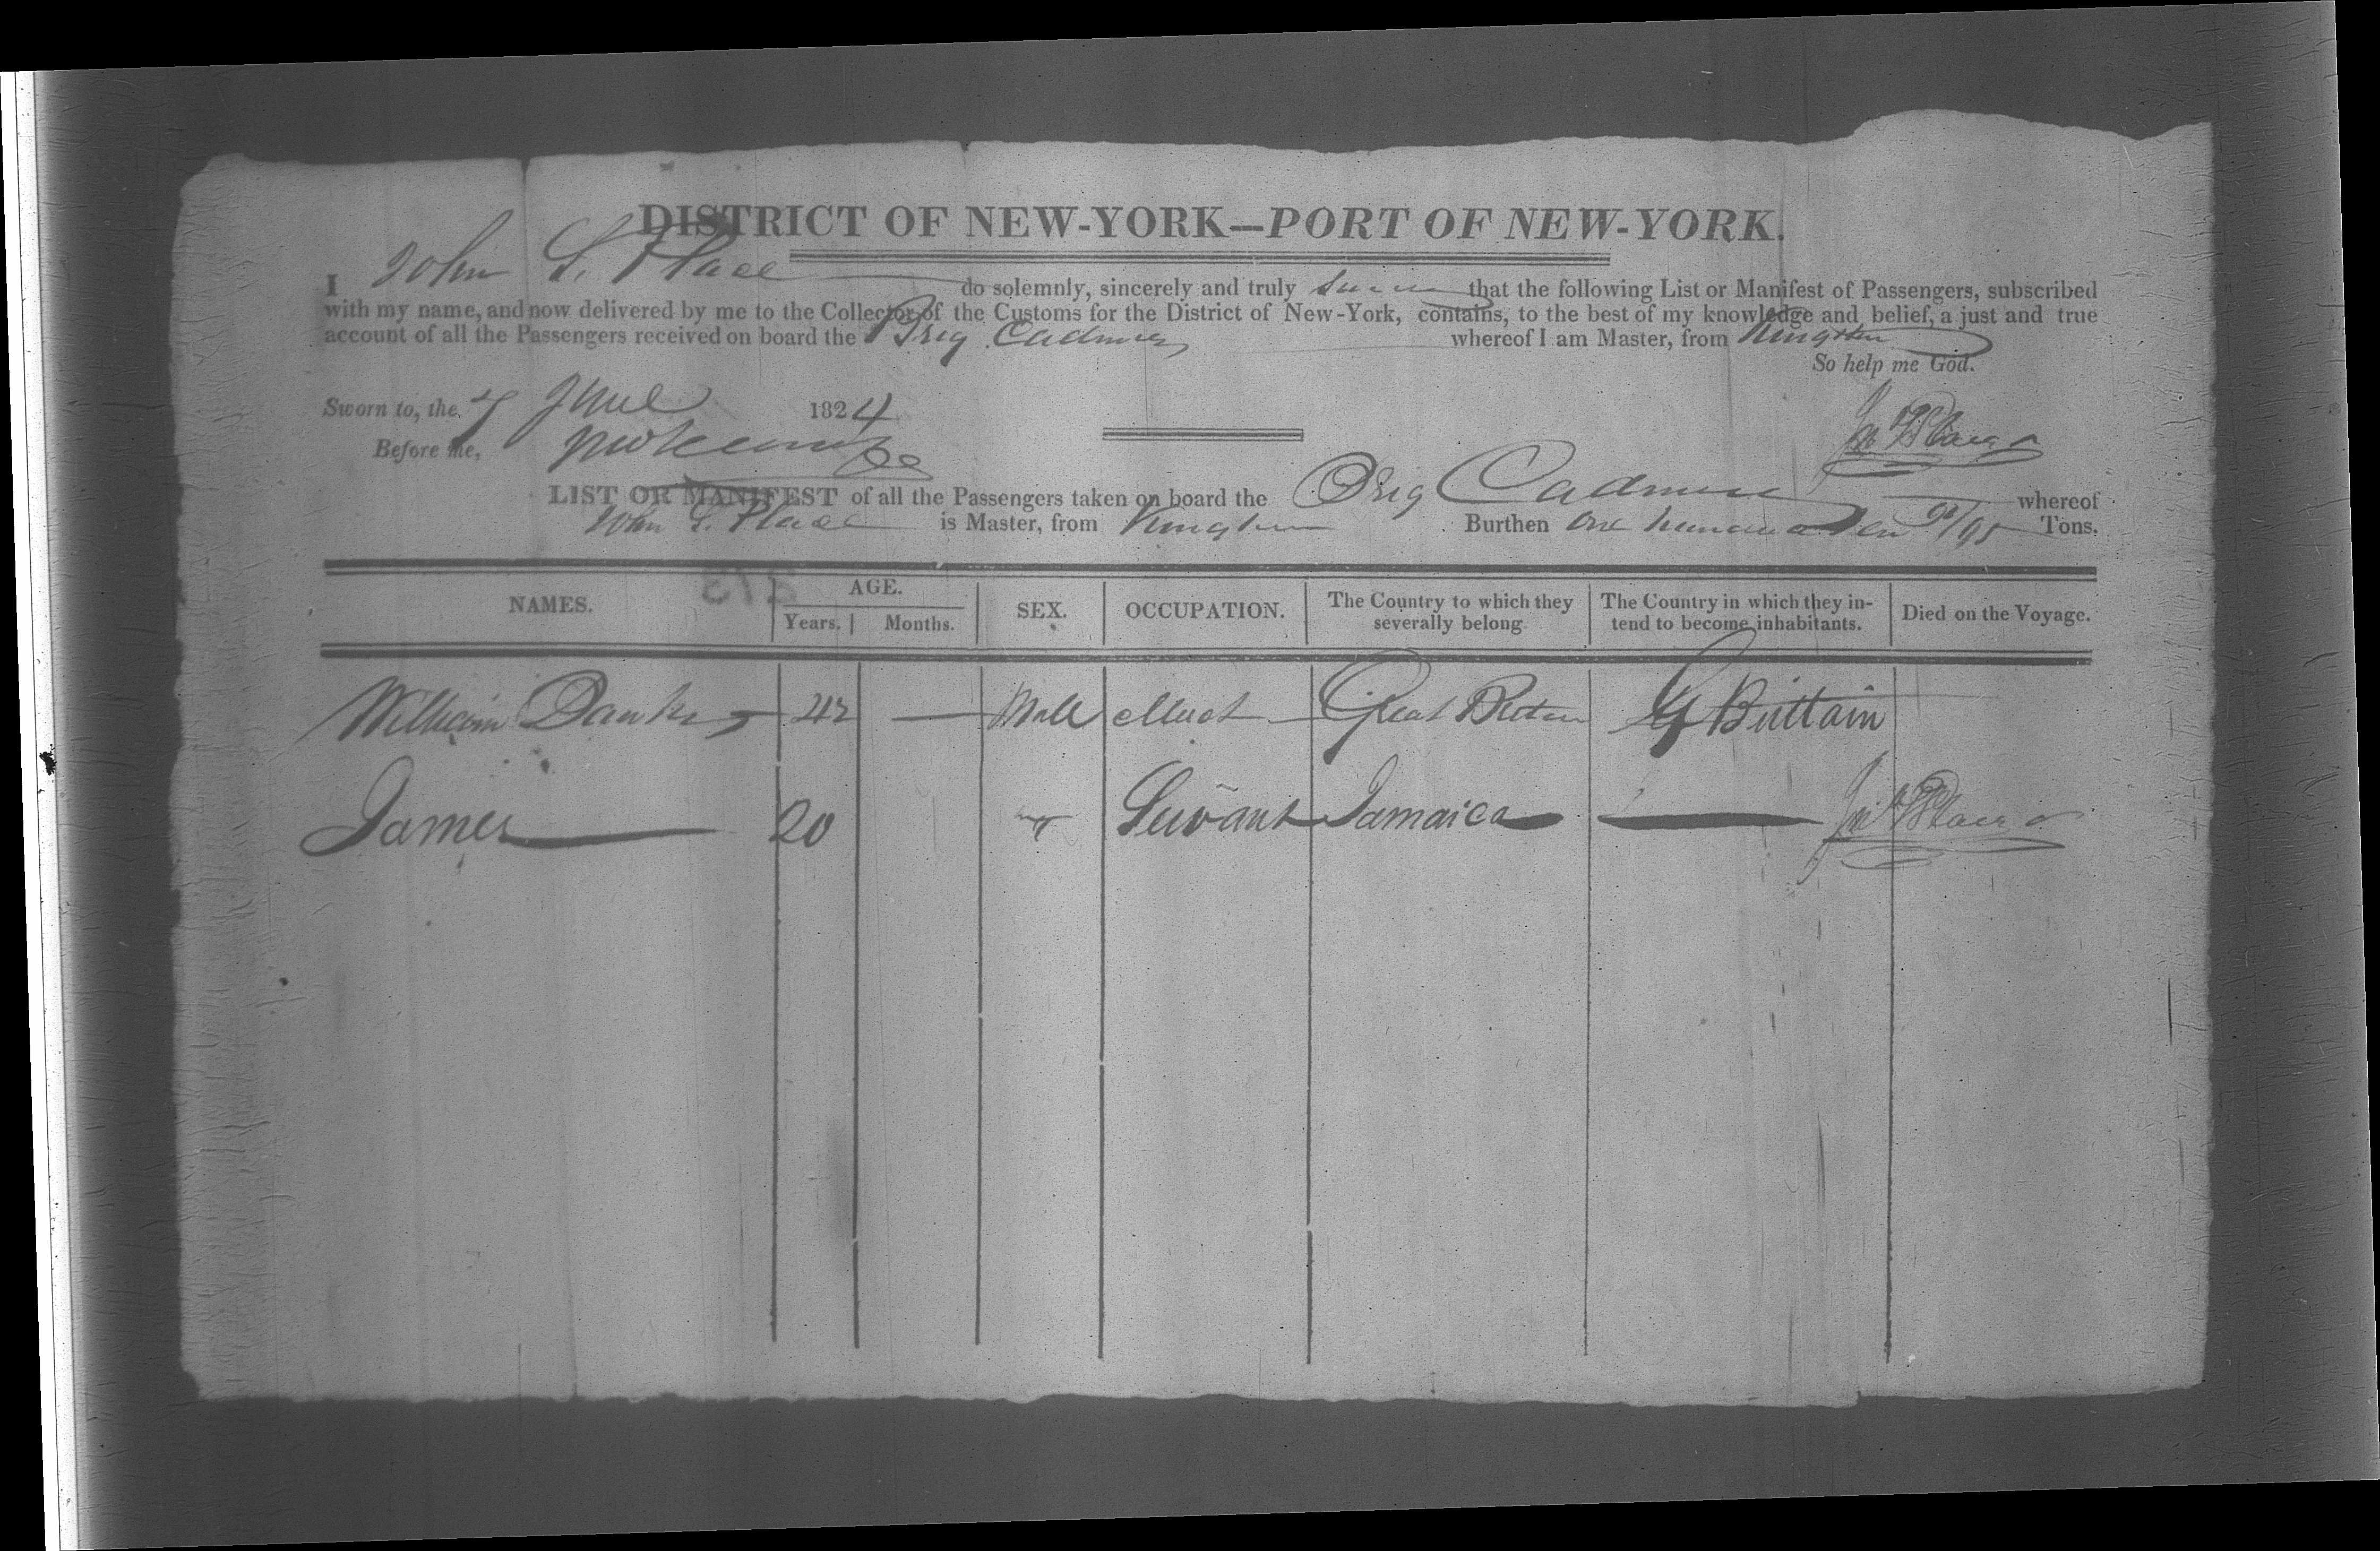 DISTRICT OF NEW-YORK—PORT OF NEW-YORK.
I John S. Place do solemnly, sincerely and truly swear that the following List or Manifest of Passengers, subscribed
with my name, and now delivered by me to the Collector of the Customs for the District of New-York, contains, to the best of my knowledge and belief, a just and true
account of all the Passengers received on board the Brig Cadmus whereof I am Master, from Kingston
So help me God.
Sworn to, the 7 June 1824
Before me,
LIST OR MANIFEST of all the Passengers taken on board the Brig Cadmus whereof
John S. Place is Master, from Kingston Burthen One hundred ten /95 Tons.
NAMES. AGE. SEX. OCCUPATION. The Country to which they severally belong The Country in which they intend to become inhabitants. Died on the Voyage.
Years. Months.
William Danks 42 — Male Mercht Great Britain G Brittain
James 20 Servant Jamaica —